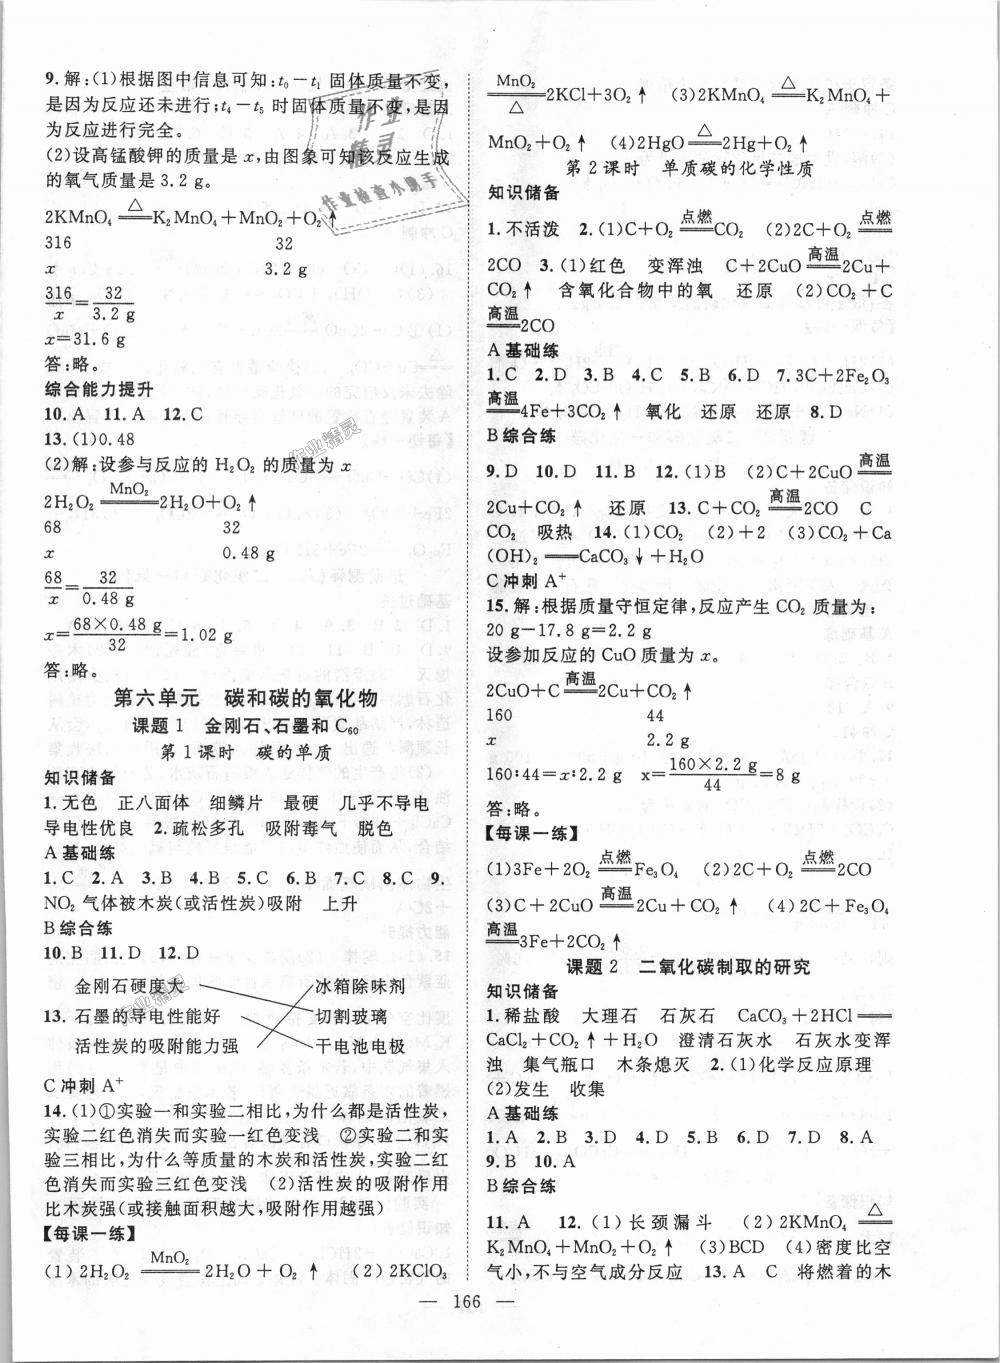 9.解:(1)根据图中信息可知:t₀－t₁ 固体质量不变,
是因为反应还未进行;t₄－t₅ 时固体质量不变,是因
为反应进行完全。
(2)设高锰酸钾的质量是 x,由图象可知该反应生成
的氧气质量是 3.2 g。
△
2KMnO₄══K₂MnO₄＋MnO₂＋O₂↑
316 32
x 3.2 g
316/x＝32/3.2 g
x＝31.6 g
答:略。
综合能力提升
10. A 11. A 12. C
13. (1)0.48
(2)解:设参与反应的 H₂O₂ 的质量为 x
MnO₂
2H₂O₂══2H₂O＋O₂↑
68 32
x 0.48 g
68/x＝32/0.48 g
x＝68×0.48 g/32＝1.02 g
答:略。
第六单元 碳和碳的氧化物
课题 1 金刚石、石墨和 C₆₀
第 1 课时 碳的单质
知识储备
1.无色 正八面体 细鳞片 最硬 几乎不导电
导电性优良 2.疏松多孔 吸附毒气 脱色
A 基础练
1. C 2. A 3. B 4. B 5. C 6. B 7. C 8. C 9.
NO₂ 气体被木炭(或活性炭)吸附 上升
B 综合练
10. B 11. D 12. D
金刚石硬度大 冰箱除味剂
13. 石墨的导电性能好 切割玻璃
活性炭的吸附能力强 干电池电极
C 冲刺 A⁺
14. (1)①实验一和实验二相比,为什么都是活性炭,
实验二红色消失而实验一红色变浅 ②实验二和实
验三相比,为什么等质量的木炭和活性炭,实验二红
色消失而实验三红色变浅 (2)活性炭的吸附作用
比木炭强(或接触面积越大,吸附作用越强)
【每课一练】
MnO₂
(1)2H₂O₂══2H₂O＋O₂↑ (2)2KClO₃
MnO₂ △
══2KCl＋3O₂↑ (3)2KMnO₄══K₂MnO₄＋
△ △
MnO₂＋O₂↑ (4)2HgO══2Hg＋O₂↑
第 2 课时 单质碳的化学性质
知识储备
点燃 点燃
1.不活泼 2.(1)C＋O₂══CO₂ (2)2C＋O₂══
高温
2CO 3.(1)红色 变浑浊 C＋2CuO══2Cu＋
CO₂↑ 含氧化合物中的氧 还原 (2)CO₂＋C
高温
══2CO
A 基础练
1. C 2. D 3. B 4. C 5. B 6. D 7. 3C＋2Fe₂O₃
高温
══4Fe＋3CO₂↑ 氧化 还原 还原 8. D
B 综合练
高温
9. D 10. D 11. B 12. (1)B (2)C＋2CuO══
高温
2Cu＋CO₂↑ 还原 13. C＋CO₂══2CO C
CO₂ 吸热 14. (1)CO₂ (2)＋2 (3)CO₂＋Ca
(OH)₂══CaCO₃↓＋H₂O
C 冲刺 A⁺
15. 解:根据质量守恒定律,反应产生 CO₂ 质量为:
20 g－17.8 g＝2.2 g
设参加反应的 CuO 质量为 x。
高温
2CuO＋C══2Cu＋CO₂↑
160 44
x 2.2 g
160∶44＝x∶2.2 g x＝160×2.2 g/44＝8 g
答:略。
【每课一练】
点燃 点燃
(1)3Fe＋2O₂══Fe₃O₄ (2)2C＋O₂══2CO
高温
(3)C＋2CuO══2Cu＋CO₂↑ (4)2C＋Fe₃O₄
高温
══3Fe＋2CO₂↑
课题 2 二氧化碳制取的研究
知识储备
1.稀盐酸 大理石 石灰石 CaCO₃＋2HCl══
CaCl₂＋CO₂↑＋H₂O 澄清石灰水 石灰水变浑
浊 集气瓶口 木条熄灭 2.(1)化学反应原理
(2)发生 收集
A 基础练
1. A 2. B 3. D 4. D 5. B 6. D 7. D 8. A
9. B 10. A
B 综合练
△
11. A 12. (1)长颈漏斗 (2)2KMnO₄══
K₂MnO₄＋MnO₂＋O₂↑ (3)BCD (4)密度比空
气小,不与空气成分反应 13. A C 将燃着的木
— 166 —
作业
精灵
作业检查小助手
作业精灵
作业精灵